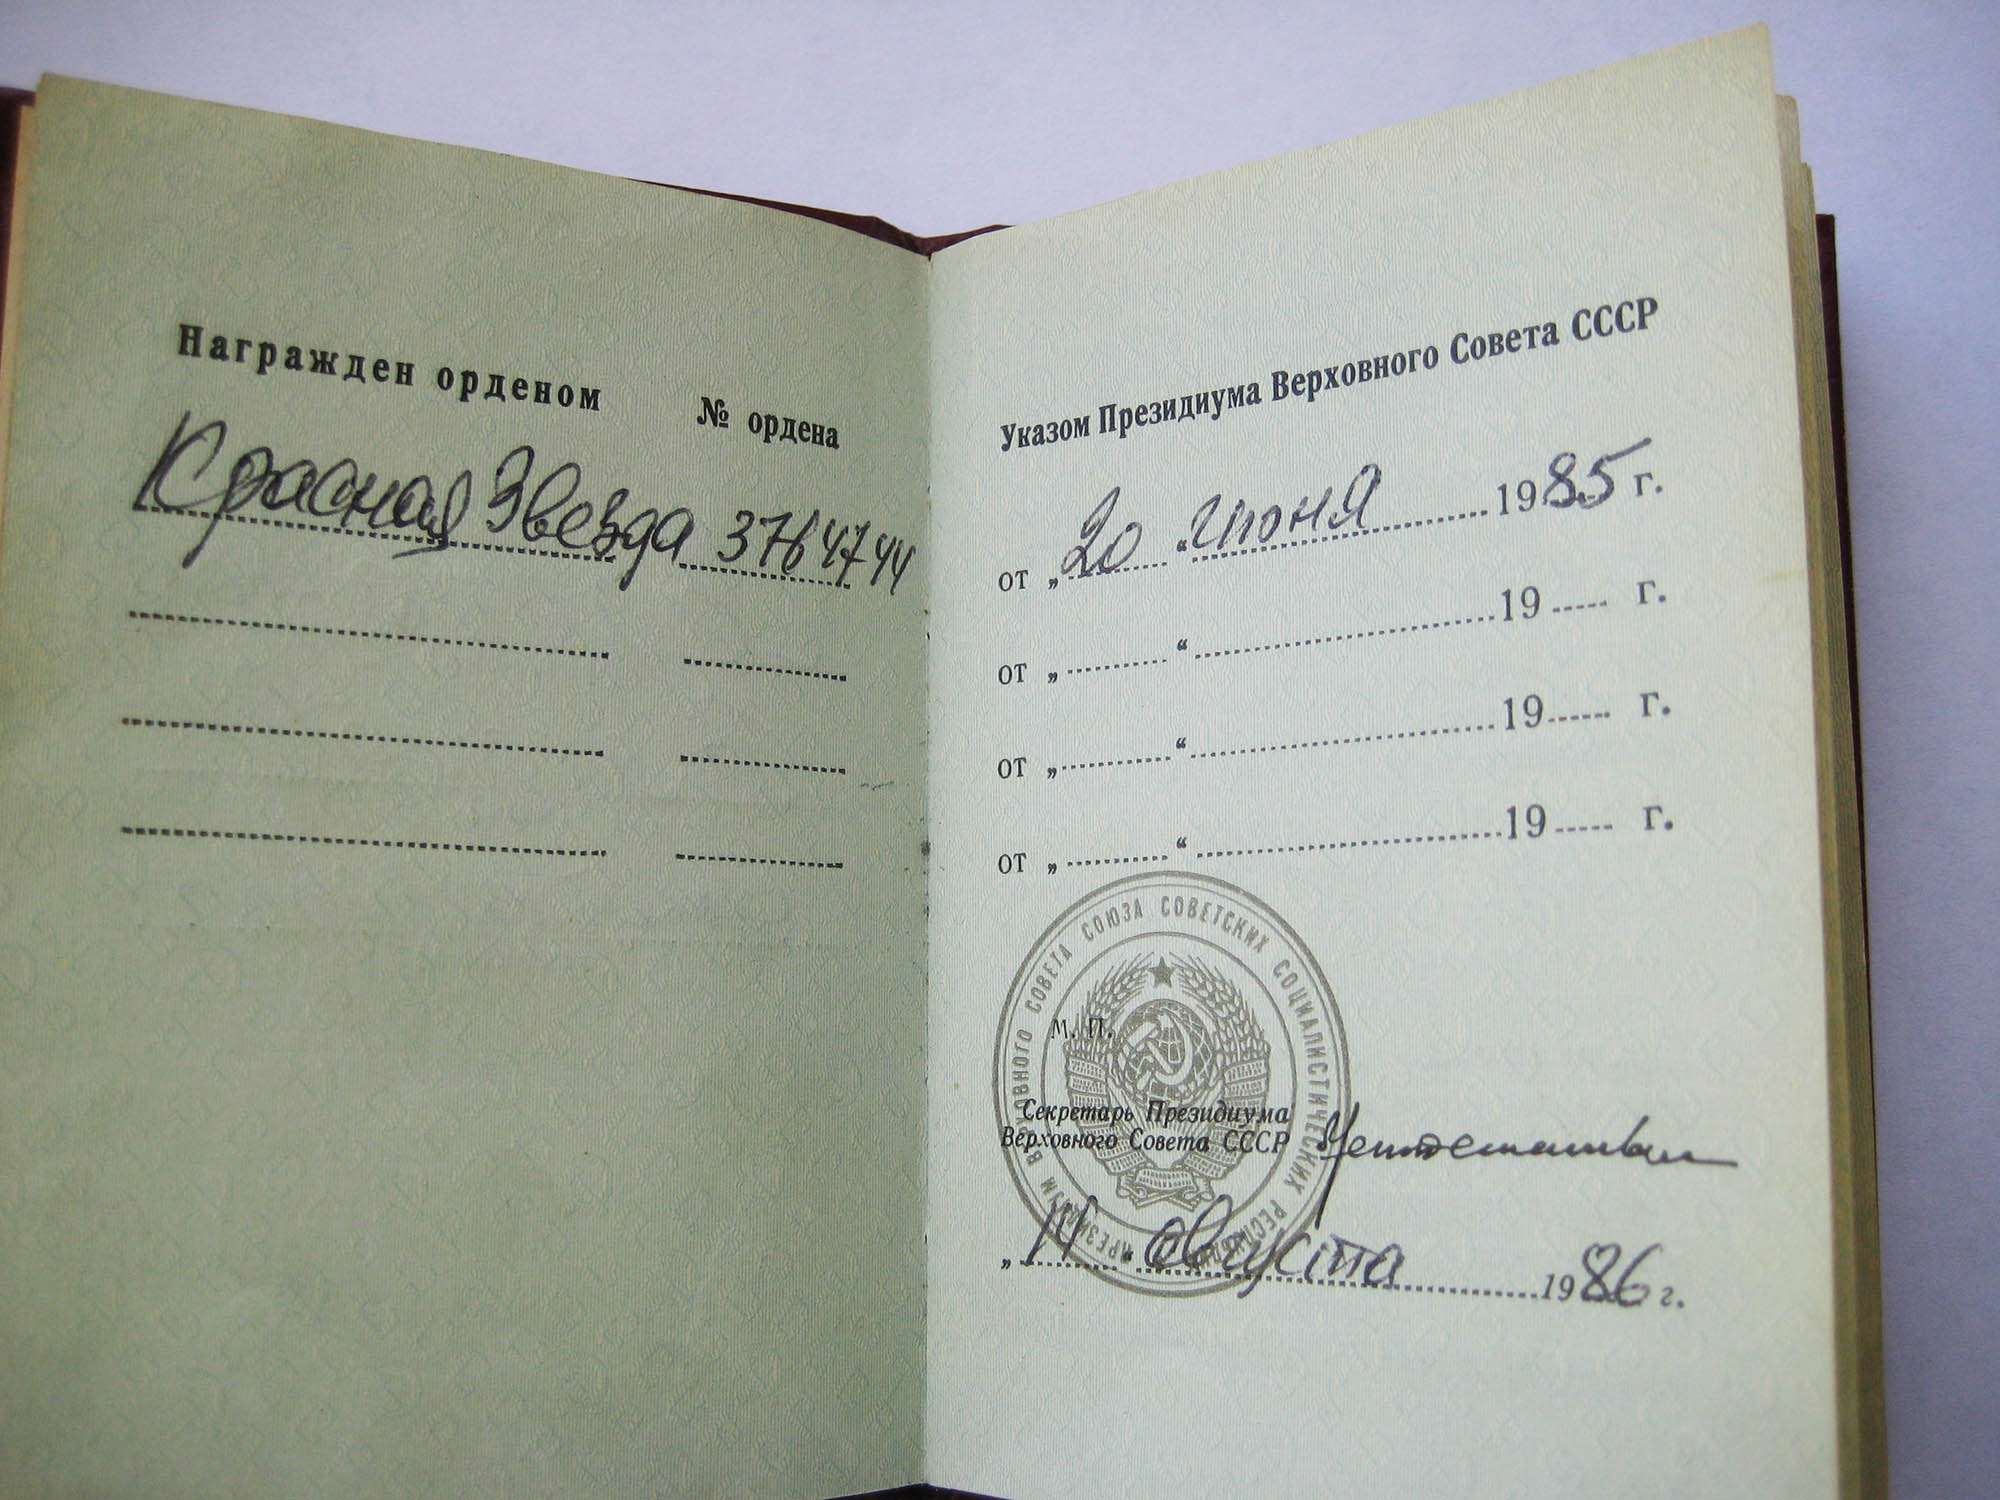 Награжден орденом № ордена
Красная Звезда 3764744
Указом Президиума Верховного Совета СССР
от „20“ июня 1985 г.
от „ “ 19 г.
от „ “ 19 г.
от „ “ 19 г.
ПРЕЗИДИУМ ВЕРХОВНОГО СОВЕТА СОЮЗА СОВЕТСКИХ СОЦИАЛИСТИЧЕСКИХ РЕСПУБЛИК
М. П.
Секретарь Президиума
Верховного Совета СССР
„11“ августа 1986 г.